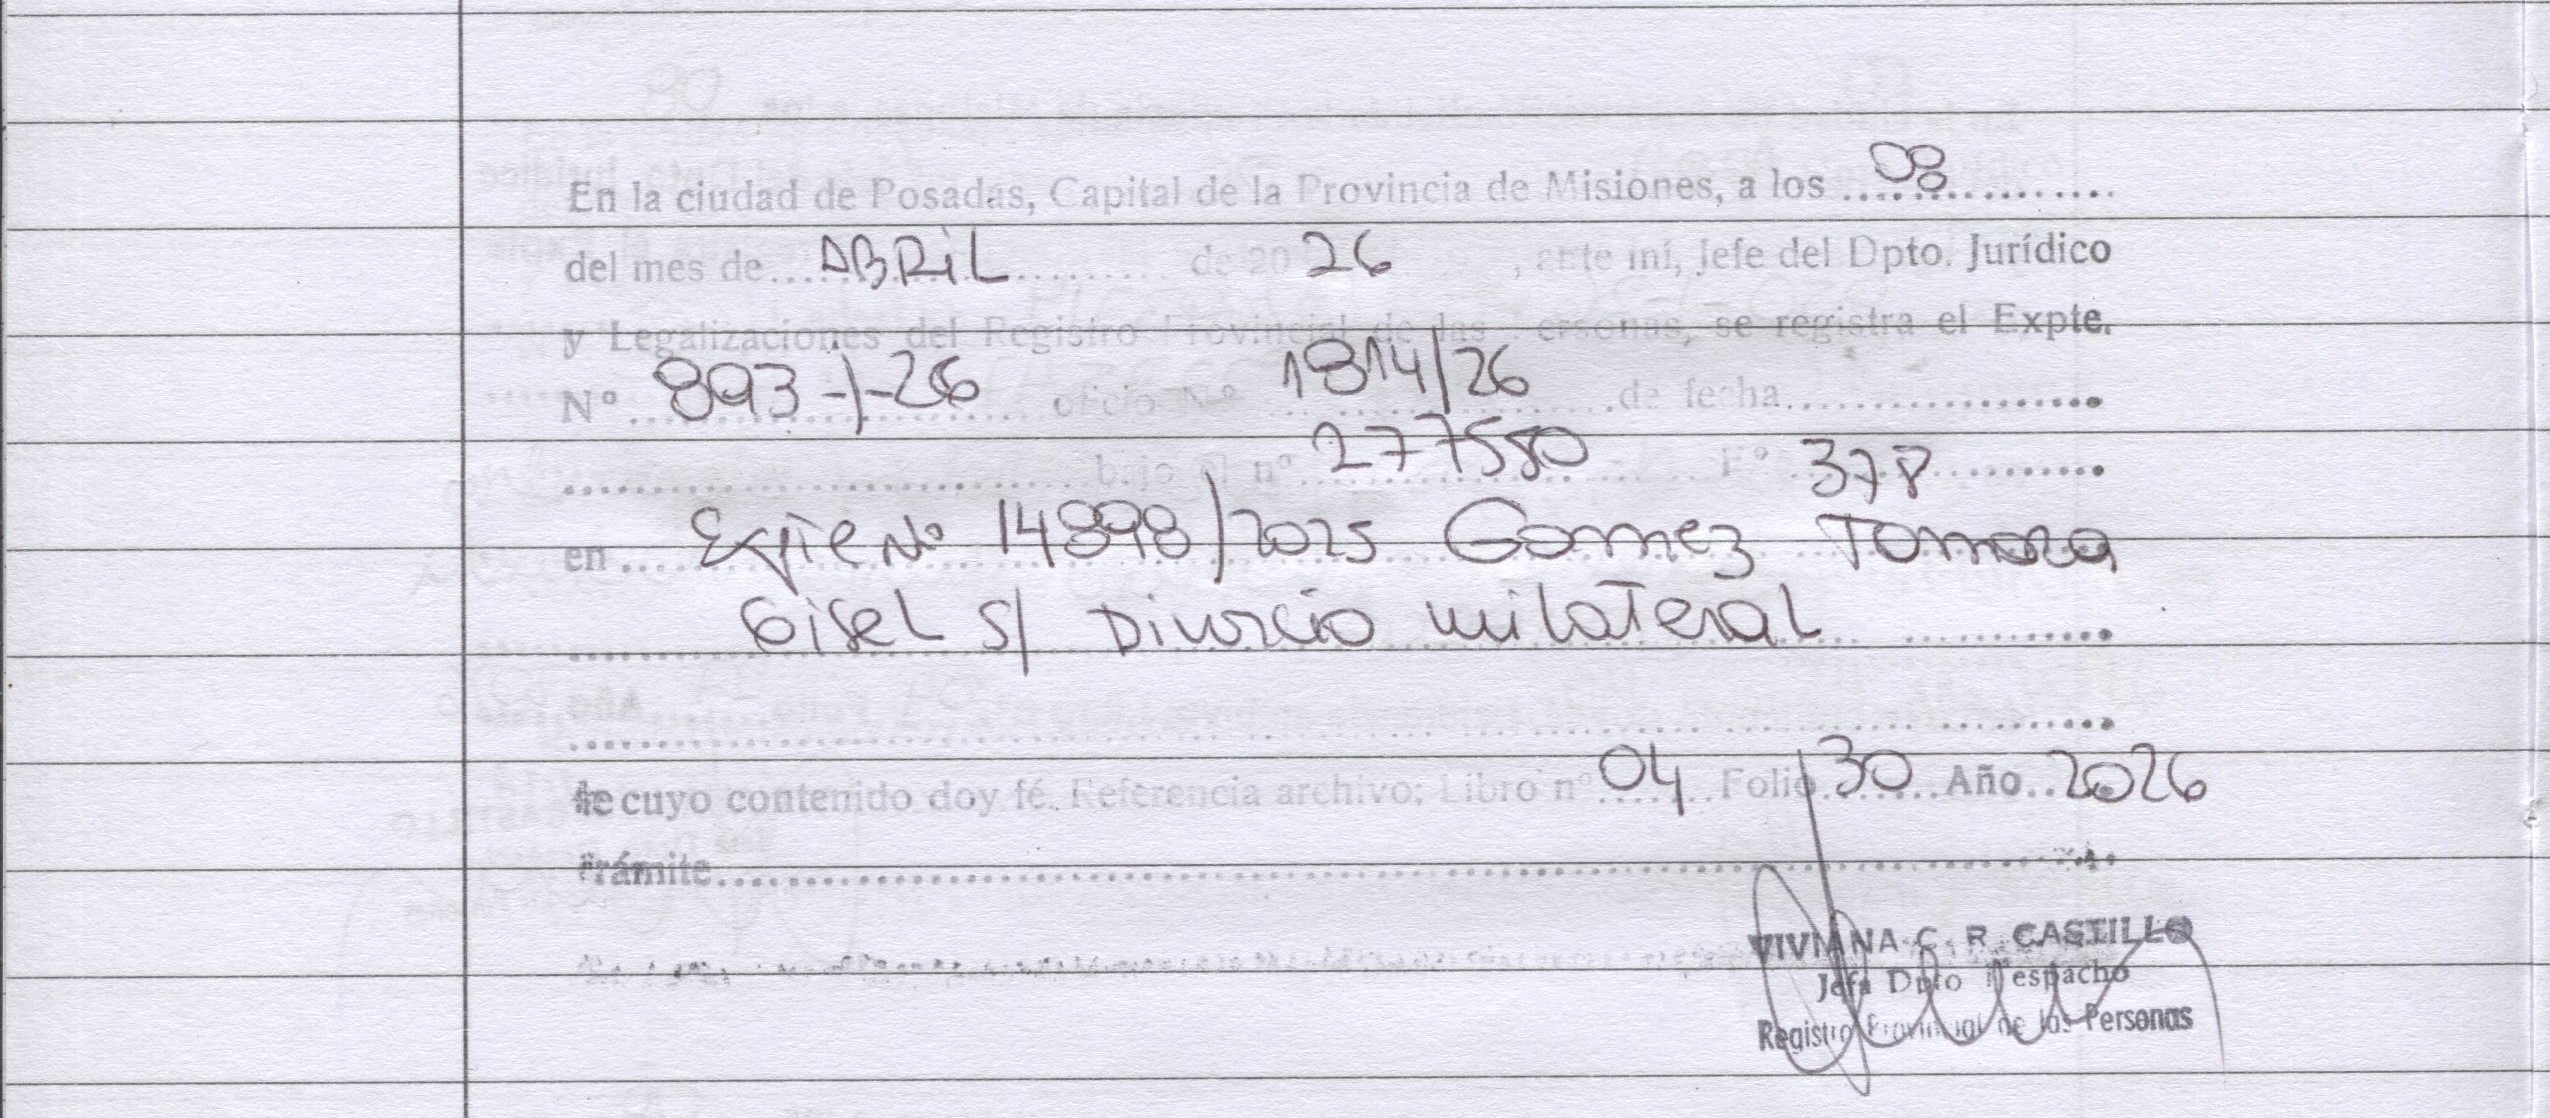 En la ciudad de Posadas, Capital de la Provincia de Misiones, a los 08
del mes de ABRIL de 20 26, ante mí, Jefe del Dpto. Jurídico
y Legalizaciones del Registro Provincial de las Personas, se registra el Expte.
Nº 893-/-26 oficio Nº 1814/26 de fecha
bajo el nº 277580 Fº 378
en Expte Nº 14898/2025 Gomez Tamara
Gisel S/ Divorcio unilateral
de cuyo contenido doy fé. Referencia archivo; Libro nº 04 Folio 30 Año 2026
Trámite
VIVIANA C. R. CASTILLO
Jefa Dpto Despacho
Registro Provincial de las Personas